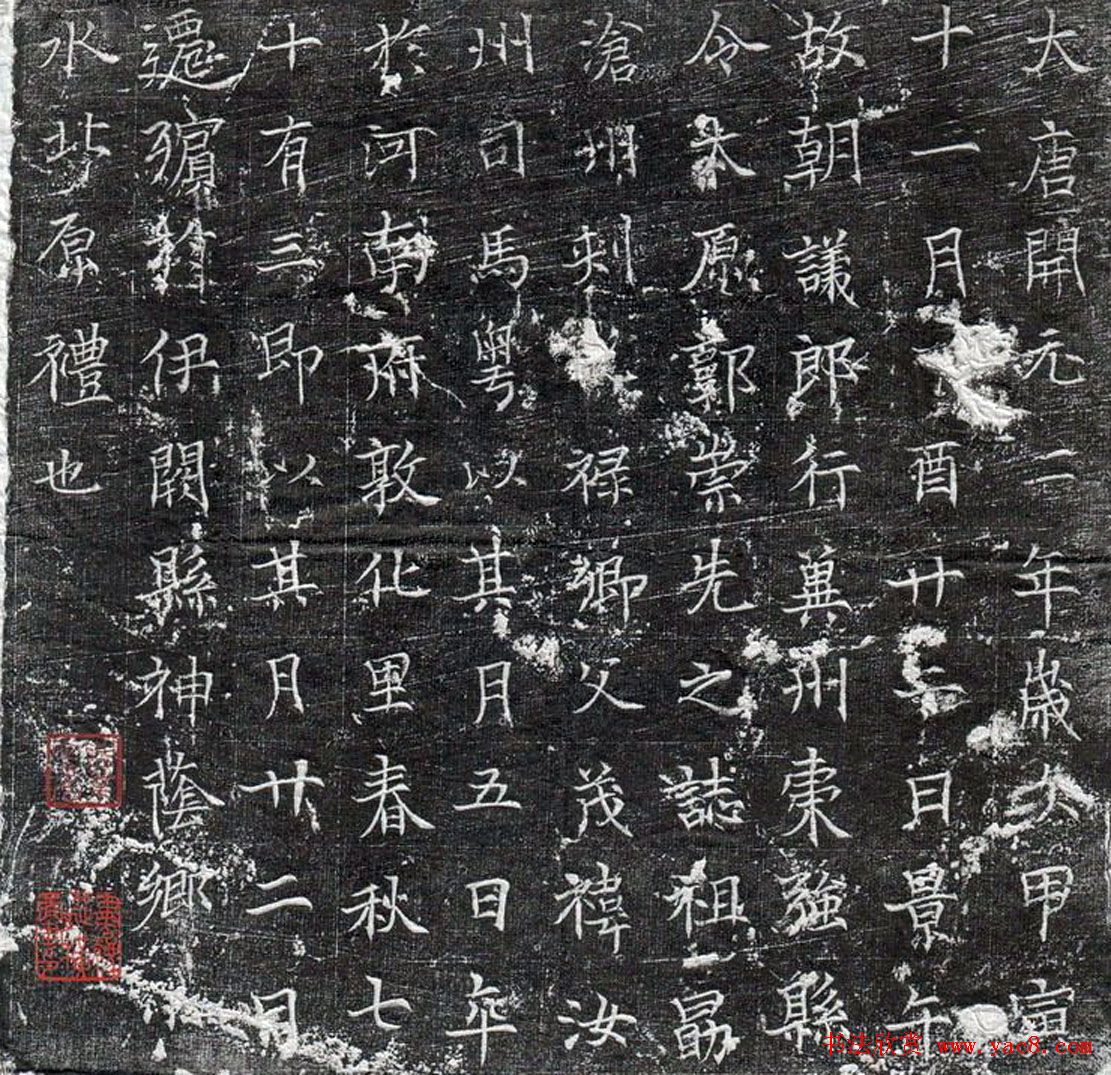 大唐開元二年歲次甲寅
十二月酉廿日景午
故朝議郎行冀州棗強縣
令太原郭崇先之誌祖勗
滄州刺祿卿父茂禕汝
州司馬粵以其月五日卒
於河南府敦化里春秋七
十有三即以其月廿二日
遷殯於伊闕縣神蔭鄉
水北原禮也
书法欣赏 www.yac8.com